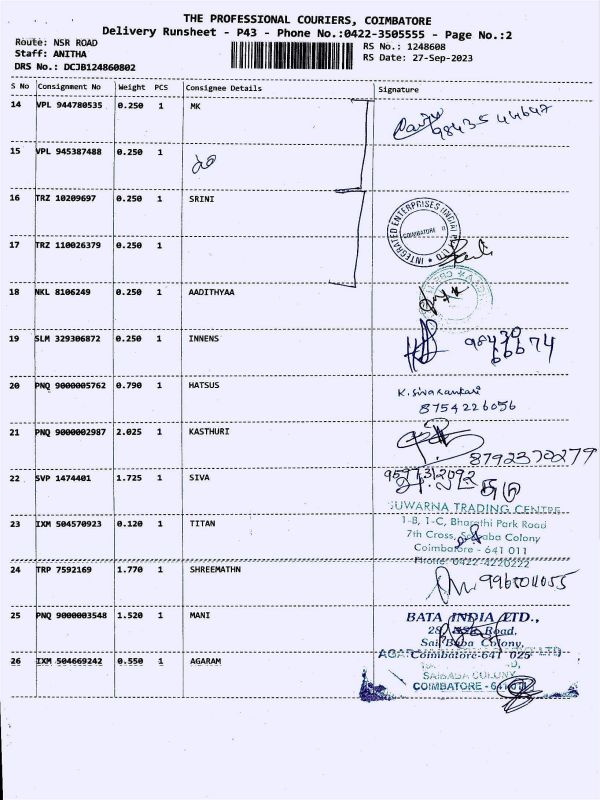 THE PROFESSIONAL COURIERS, COIMBATORE
Delivery Runsheet - P43 - Phone No.:0422-3505555 - Page No.:2
Route: NSR ROAD
Staff: ANITHA
DRS No.: DCJB124860802
RS No.: 1248608
RS Date: 27-Sep-2023
S No Consignment No Weight PCS Consignee Details Signature
14 VPL 944780535 0.250 1 MK
15 VPL 945387488 0.250 1
16 TRZ 10209697 0.250 1 SRINI
INTEGRATED ENTERPRISES (INDIA) LTD
COIMBATORE
17 TRZ 110026379 0.250 1
18 NKL 8106249 0.250 1 AADITHYAA
19 SLM 329306872 0.250 1 INNENS
20 PNQ 9000005762 0.790 1 HATSUS
8754226056
21 PNQ 9000002987 2.025 1 KASTHURI
8792370279
22 SVP 1474401 1.725 1 SIVA
SUWARNA TRADING CENTRE
23 IXM 504570923 0.120 1 TITAN
1-B, 1-C, Bharathi Park Road
7th Cross, Saibaba Colony
Coimbatore - 641 011
Phone: 0422-4220222
24 TRP 7592169 1.770 1 SHREEMATHN
25 PNQ 9000003548 1.520 1 MANI
BATA INDIA LTD.,
28, NSR Road,
Sai Baba Colony,
Coimbatore-641 025
26 IXM 504669242 0.550 1 AGARAM
SAIBABA COLONY
COIMBATORE - 641 011